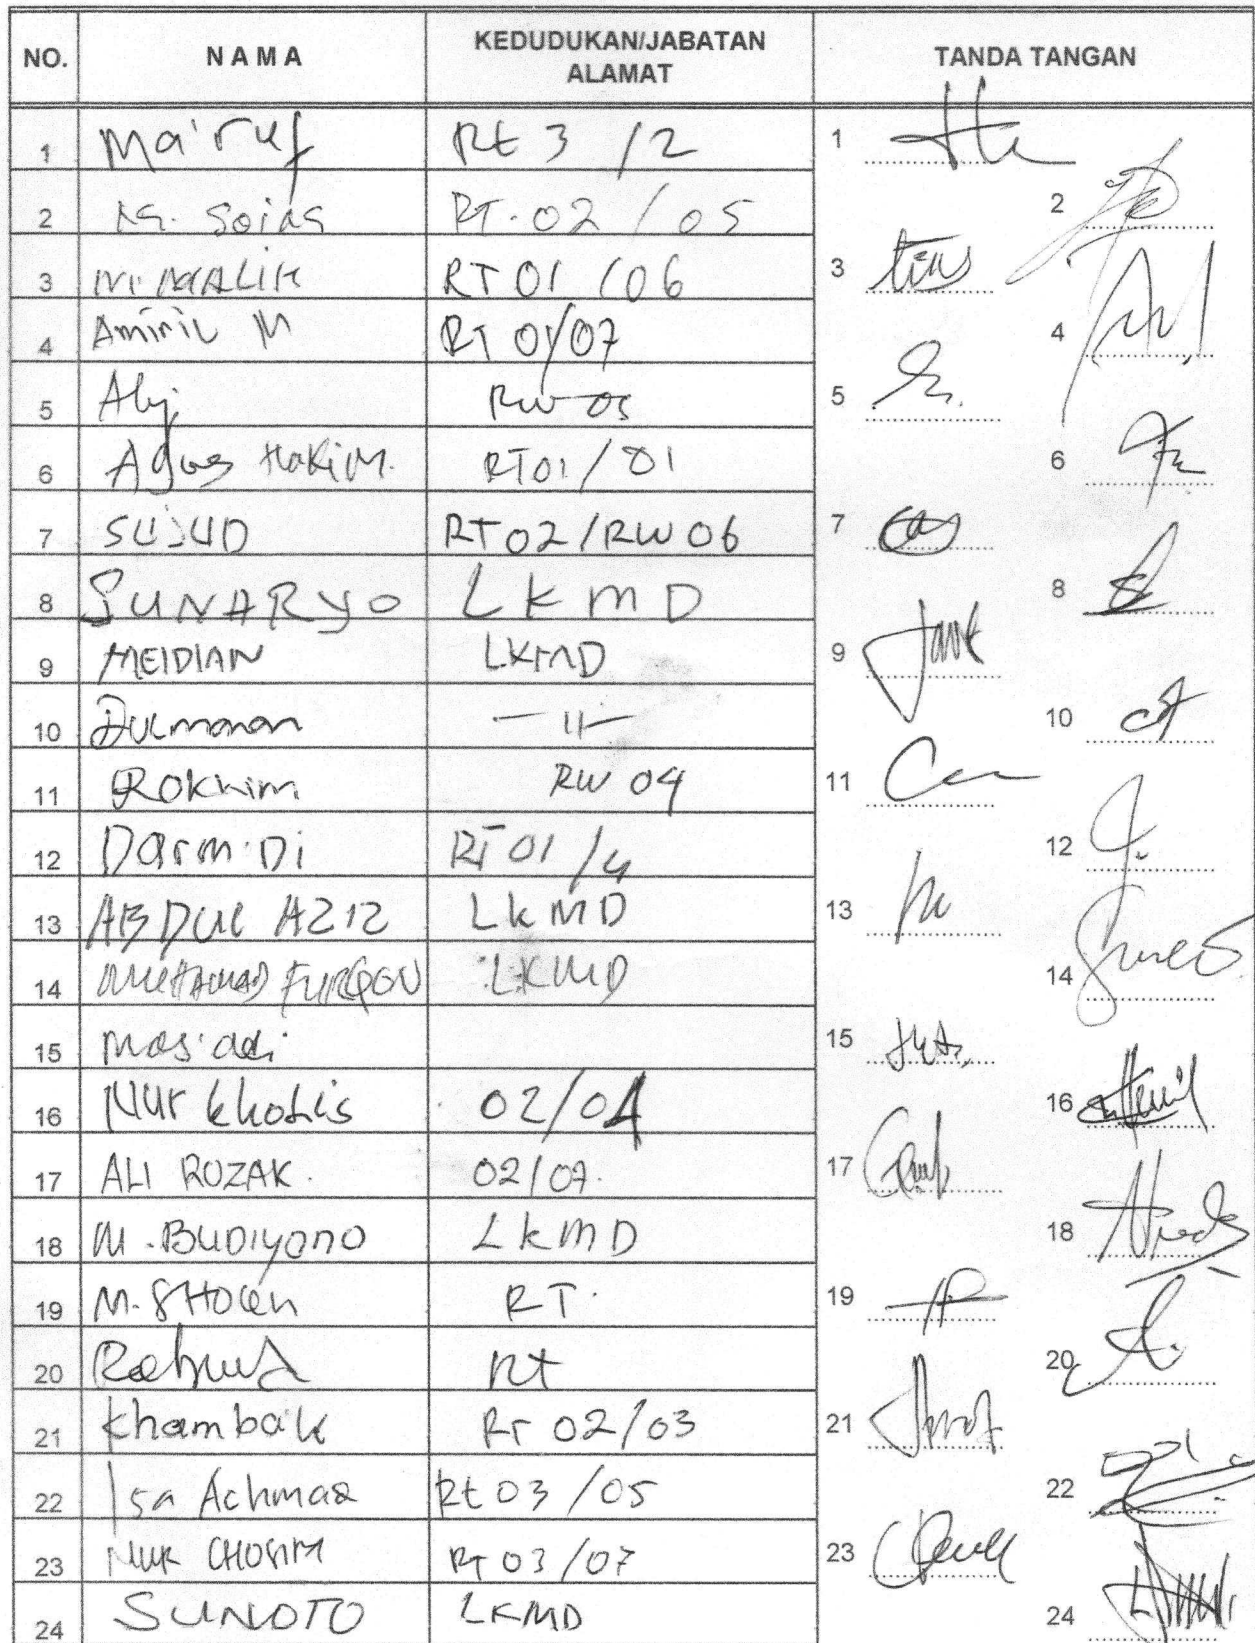 NO. NAMA KEDUDUKAN/JABATAN ALAMAT TANDA TANGAN
1 Ma'ruf Rt 3 /2 1
2 RT.02 / 05 2
3 M. MALIK RT 01 /06 3
4 Amiril M RT 01/07 4
5 RW 05 5
6 Agus Hakim. RT01/01 6
7 SUJUD RT02/RW06 7
8 SUNARYO LKMD 8
9 MEIDIAN LKMD 9
10 Dulmanan —11— 10
11 Rokhim RW 04 11
12 Darmidi RT 01 /4 12
13 ABDUL AZIZ LKMD 13
14 MUHAMAD FURQON LKMD 14
15 Mas'adi 15
16 Nur kholis 02/04 16
17 ALI ROZAK. 02/07. 17
18 M. BUDIYONO LKMD 18
19 M. RT. 19
20 Rt 20
21 Khambali Rt 02/03 21
22 Isa Achmad Rt 03 /05 22
23 NUR RT 03/07 23
24 SUNOTO LKMD 24